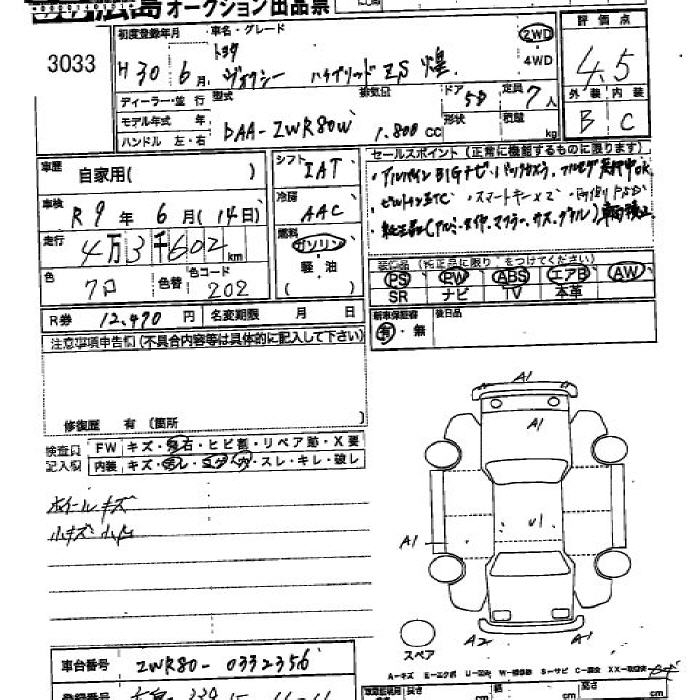 広島 オークション出品票
3033
初度登録年月 車名・グレード
H 30年 6月 トヨタ ヴォクシー ハイブリッドZS 煌 2WD・4WD
評価点
4.5
外装 内装
B C
ディーラー・並行
モデル年式 年
ハンドル 左・右
型式 DAA-ZWR80W
排気量 1.800 CC
ドア 5D
形状
定員 7人
積載 kg
車歴 自家用( )
シフト IAT
車検 R 9年 6月(14日)
冷房 AAC
走行 4万3千602km
燃料 ガソリン・軽油
( )
色 クロ 色替 色コード 202
R券 12,490円 名変期限 月 日
セールスポイント(正常に機能するものに限ります)
・アルパインBIGナビ・バックカメラ、フルセグ
・ビルトインETC ・スマートキー×2
装備品(純正品に限り○をつけてください)
PS PW ABS エアB AW
SR ナビ TV 本革
新車保証書 後日品
有・無
注意事項申告欄(不具合内容等は具体的に記入して下さい)
修復歴 有 (箇所 )
検査員記入欄
FW キズ・飛石・ヒビ割・リペア跡・X要
内装 キズ・汚レ・コゲ・穴・スレ・キレ・破レ
ホイールキズ
小キズ 小凹
A1
A1
U1
A1
A2 A1
スペア
A-キズ E-エクボ U-凹み W-補修跡 S-サビ C-腐食 XX-交換済
車台番号 ZWR80-0332356
登録番号
長さ cm 幅 cm 高さ cm